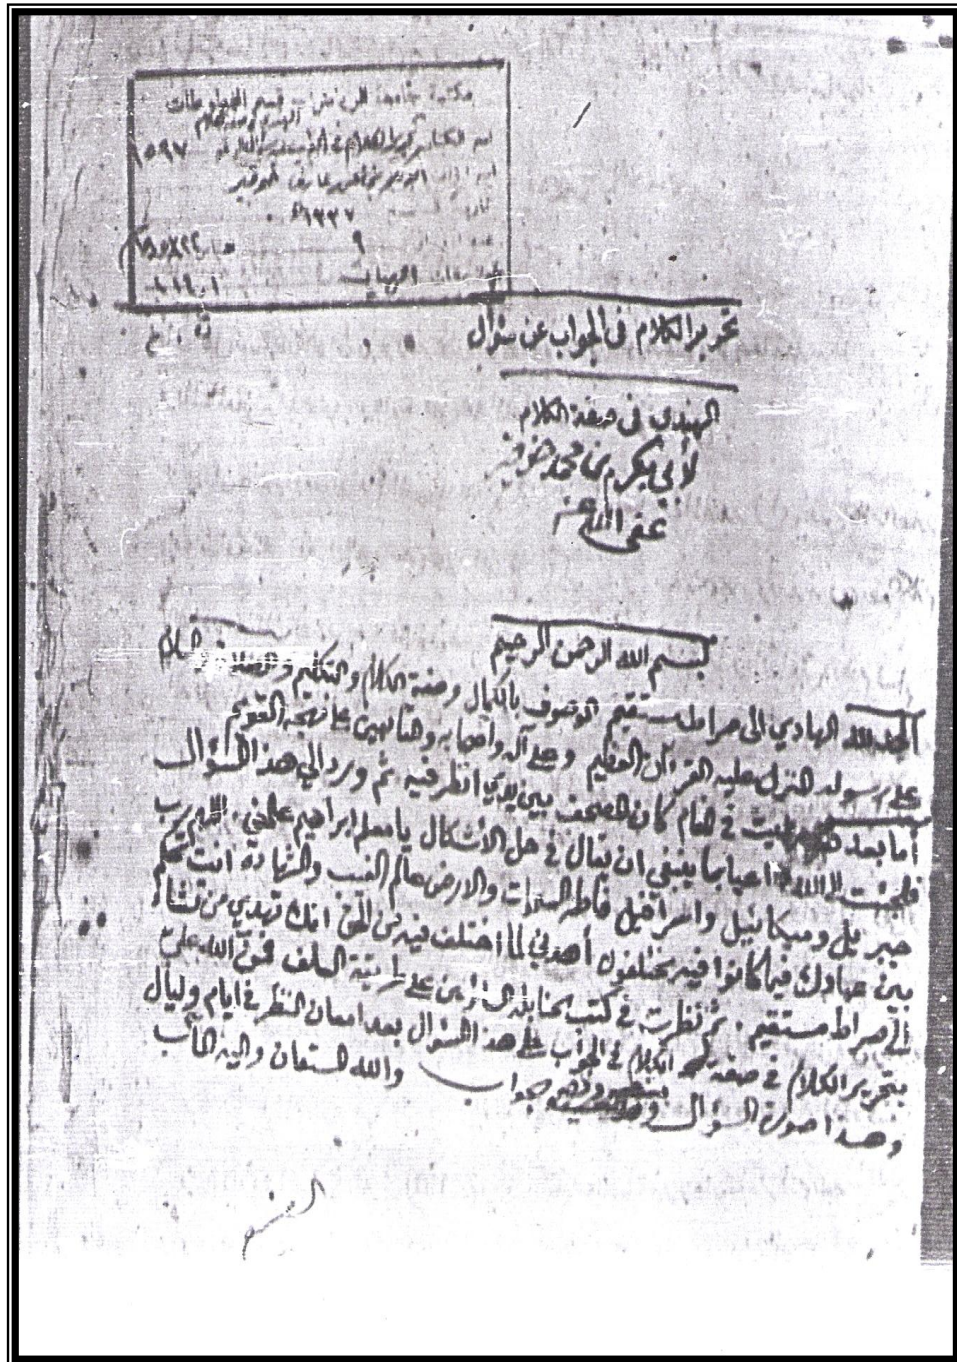 مكتبة جامعة الرياض قسم المخطوطات
اسم الكتاب تحرير الكلام في الجواب عن سؤال الهندي في صفة الكلام ١٥٩٧
اسم المؤلف ابو بكر محمد عارف خوقير
١٣٣٧
٩
تحرير الكلام في الجواب عن سؤال
الهندي في صفة الكلام
لأبي بكر بن محمد خوقير
عفى الله عنه
بسم الله الرحمن الرحيم
الحمد لله الهادي الى صراط مستقيم الموصوف بالكمال وصفة الكلام والتكليم والصلاة والسلام
على رسوله المنزل عليه القرءان العظيم وعلى آله واصحابه والتابعين على نهجه القويم
أما بعد فقد رأيت في المنام كان المصحف بين يدي انظر فيه ثم ورد الي هذا السؤال
الله بما ينبغي ان يقال في حل الاشكال يا معلم ابراهيم علمني، اللهم رب
جبرئيل وميكائيل واسرافيل فاطر السموات والارض عالم الغيب والشهادة انت تحكم
بين عبادك فيما كانوا فيه يختلفون أهدني لما اختلف فيه من الحق انك تهدي من تشاء
الى صراط مستقيم، ثم نظرت في كتب على طريقة السلف فمنّ الله عليّ
بتحرير الكلام في صفة الكلام في الجواب على هذا السؤال بعد امعان النظر في ايام وليال
وهذا صورة السؤال جواب والله المستعان واليه المآب